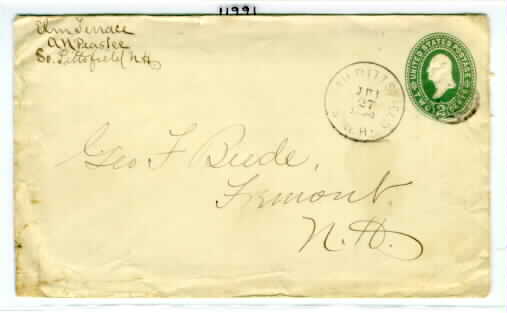 11991
Elm Terrace
A N Peaslee
So. Pittsfield N.H.
UNITED STATES POSTAGE
TWO 2 CENTS
27
N.H.
Geo F. Beede,
Fremont.
N.H.